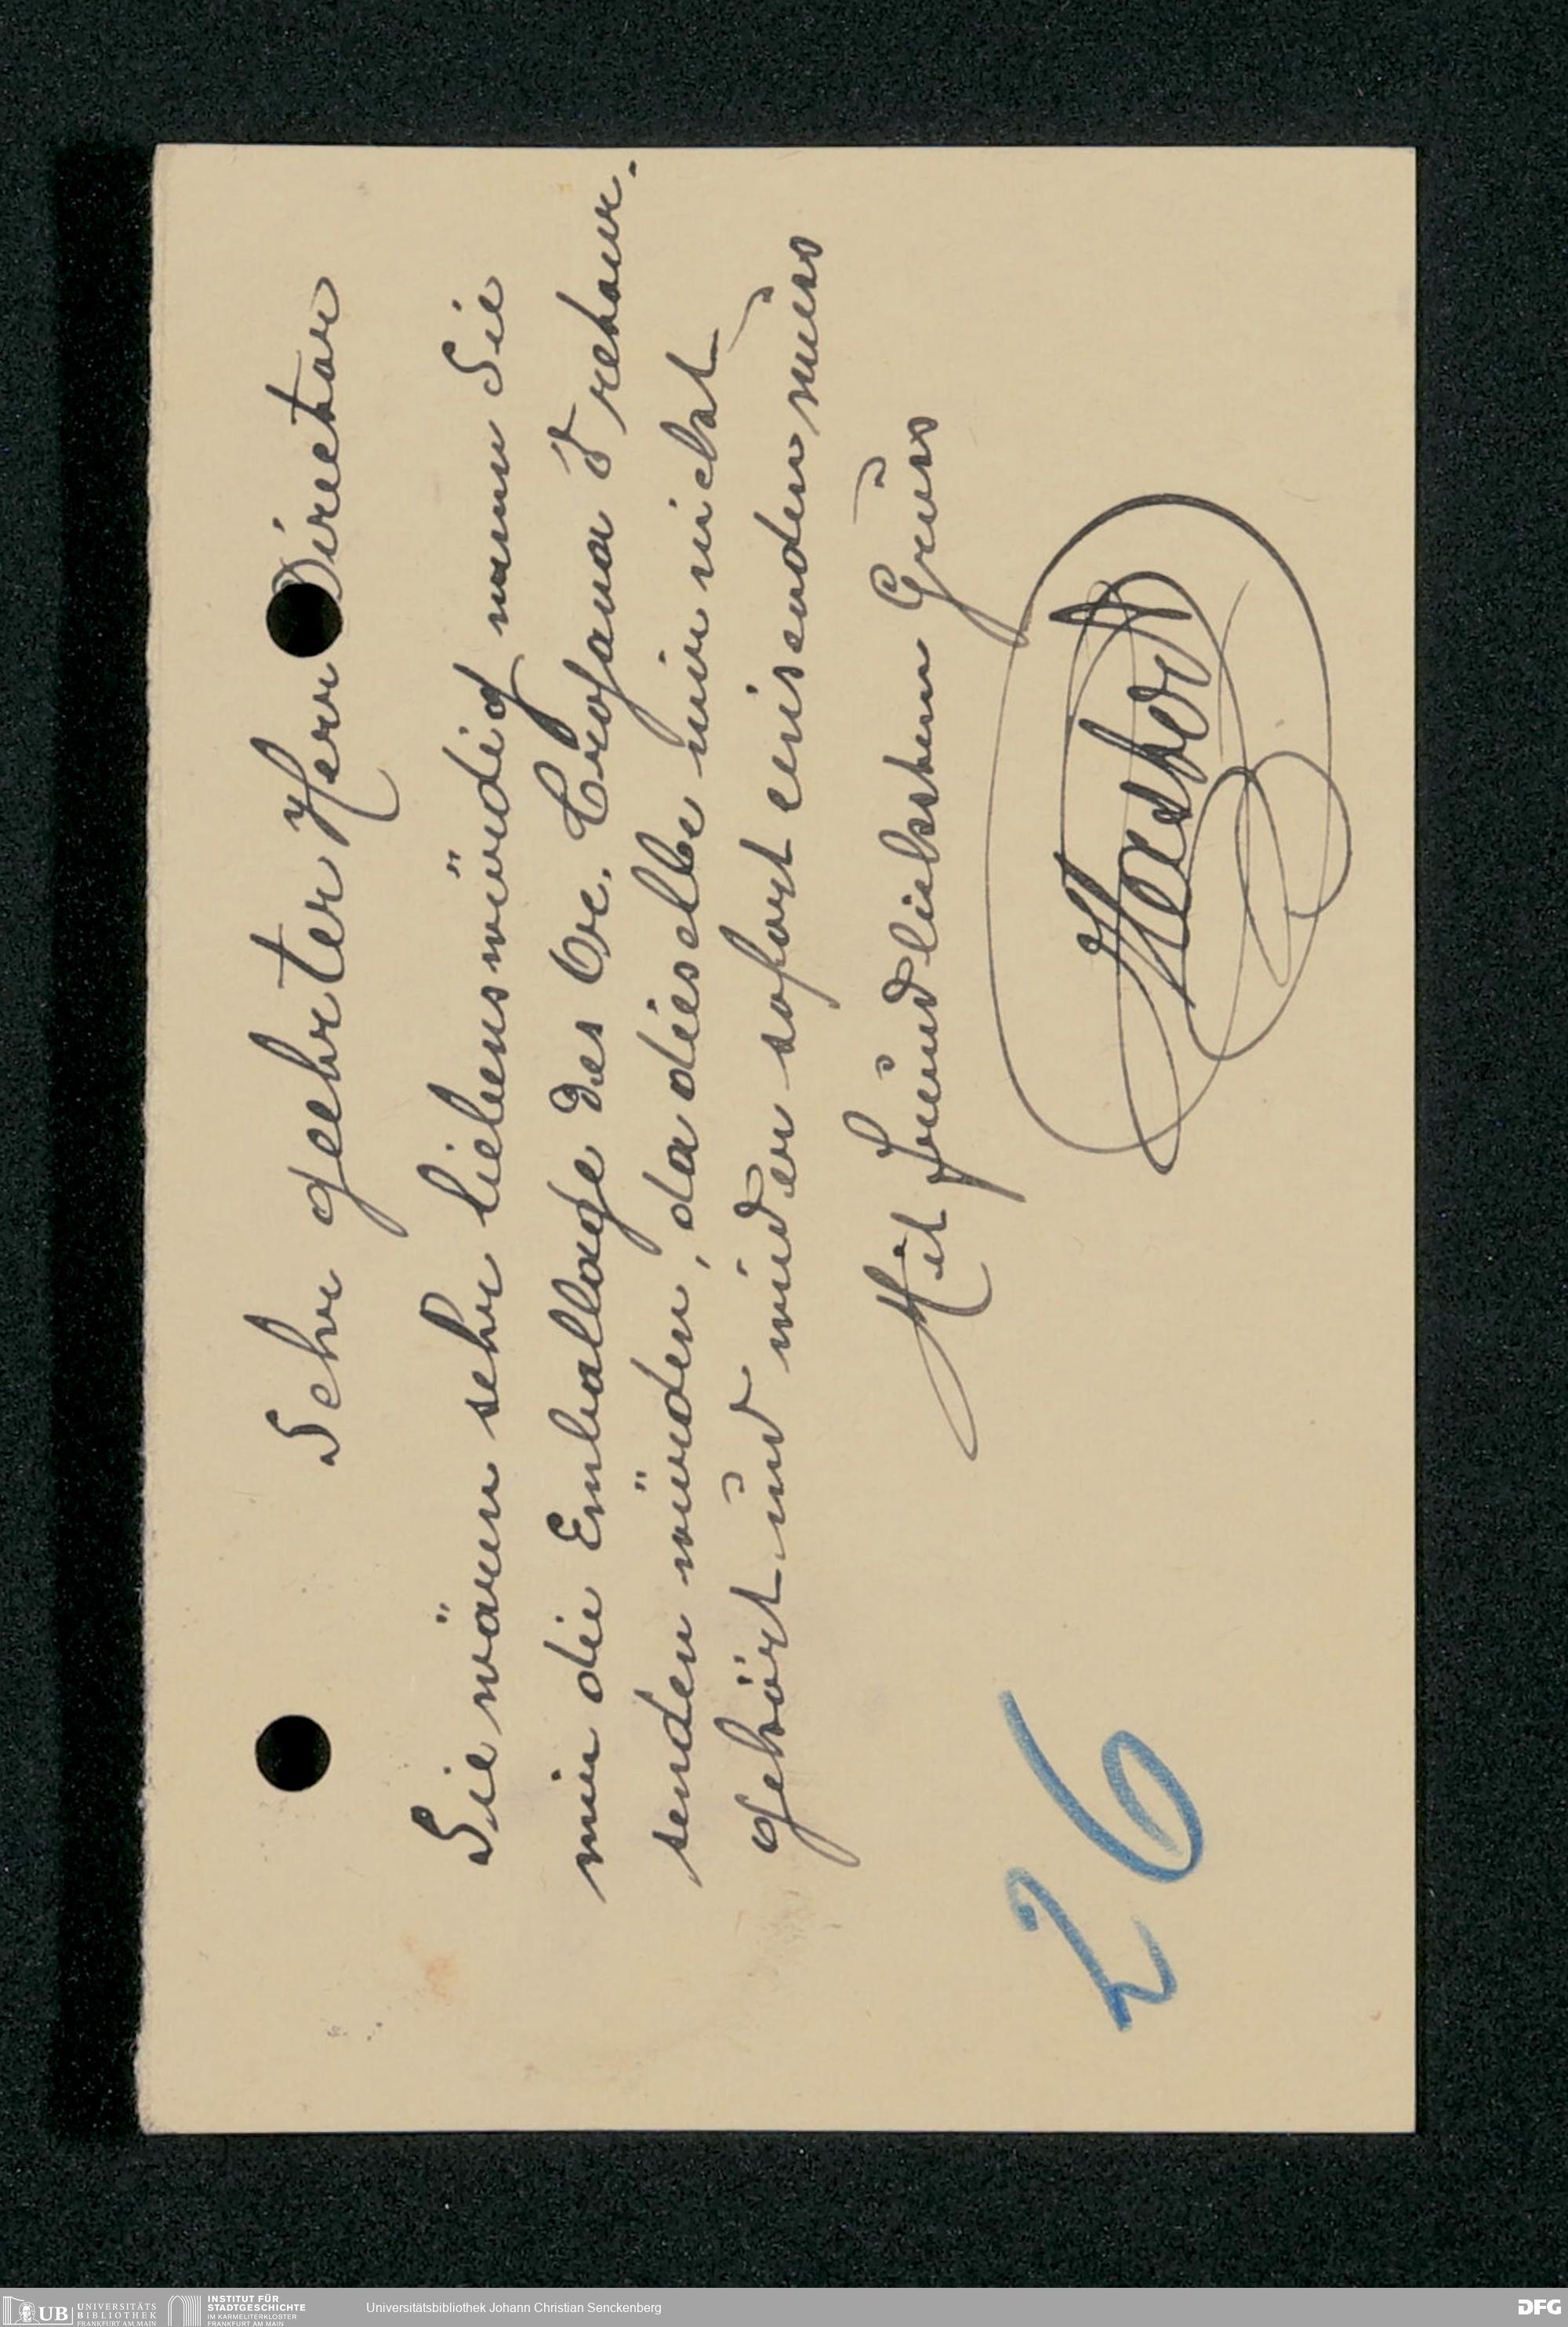 Sehr geehrter Herr Director
Sie wären sehr liebenswürdig wenn Sie
mir die Emballage des Cr. Crofana I retour-
senden würden, da dieselbe mir nicht
gehört und wieder sofort einsenden muss
Mit freundlichstem Gruss
26
UB UNIVERSITÄTS
BIBLIOTHEK
FRANKFURT AM MAIN
INSTITUT FÜR
STADTGESCHICHTE
IM KARMELITERKLOSTER
FRANKFURT AM MAIN
Universitätsbibliothek Johann Christian Senckenberg
DFG